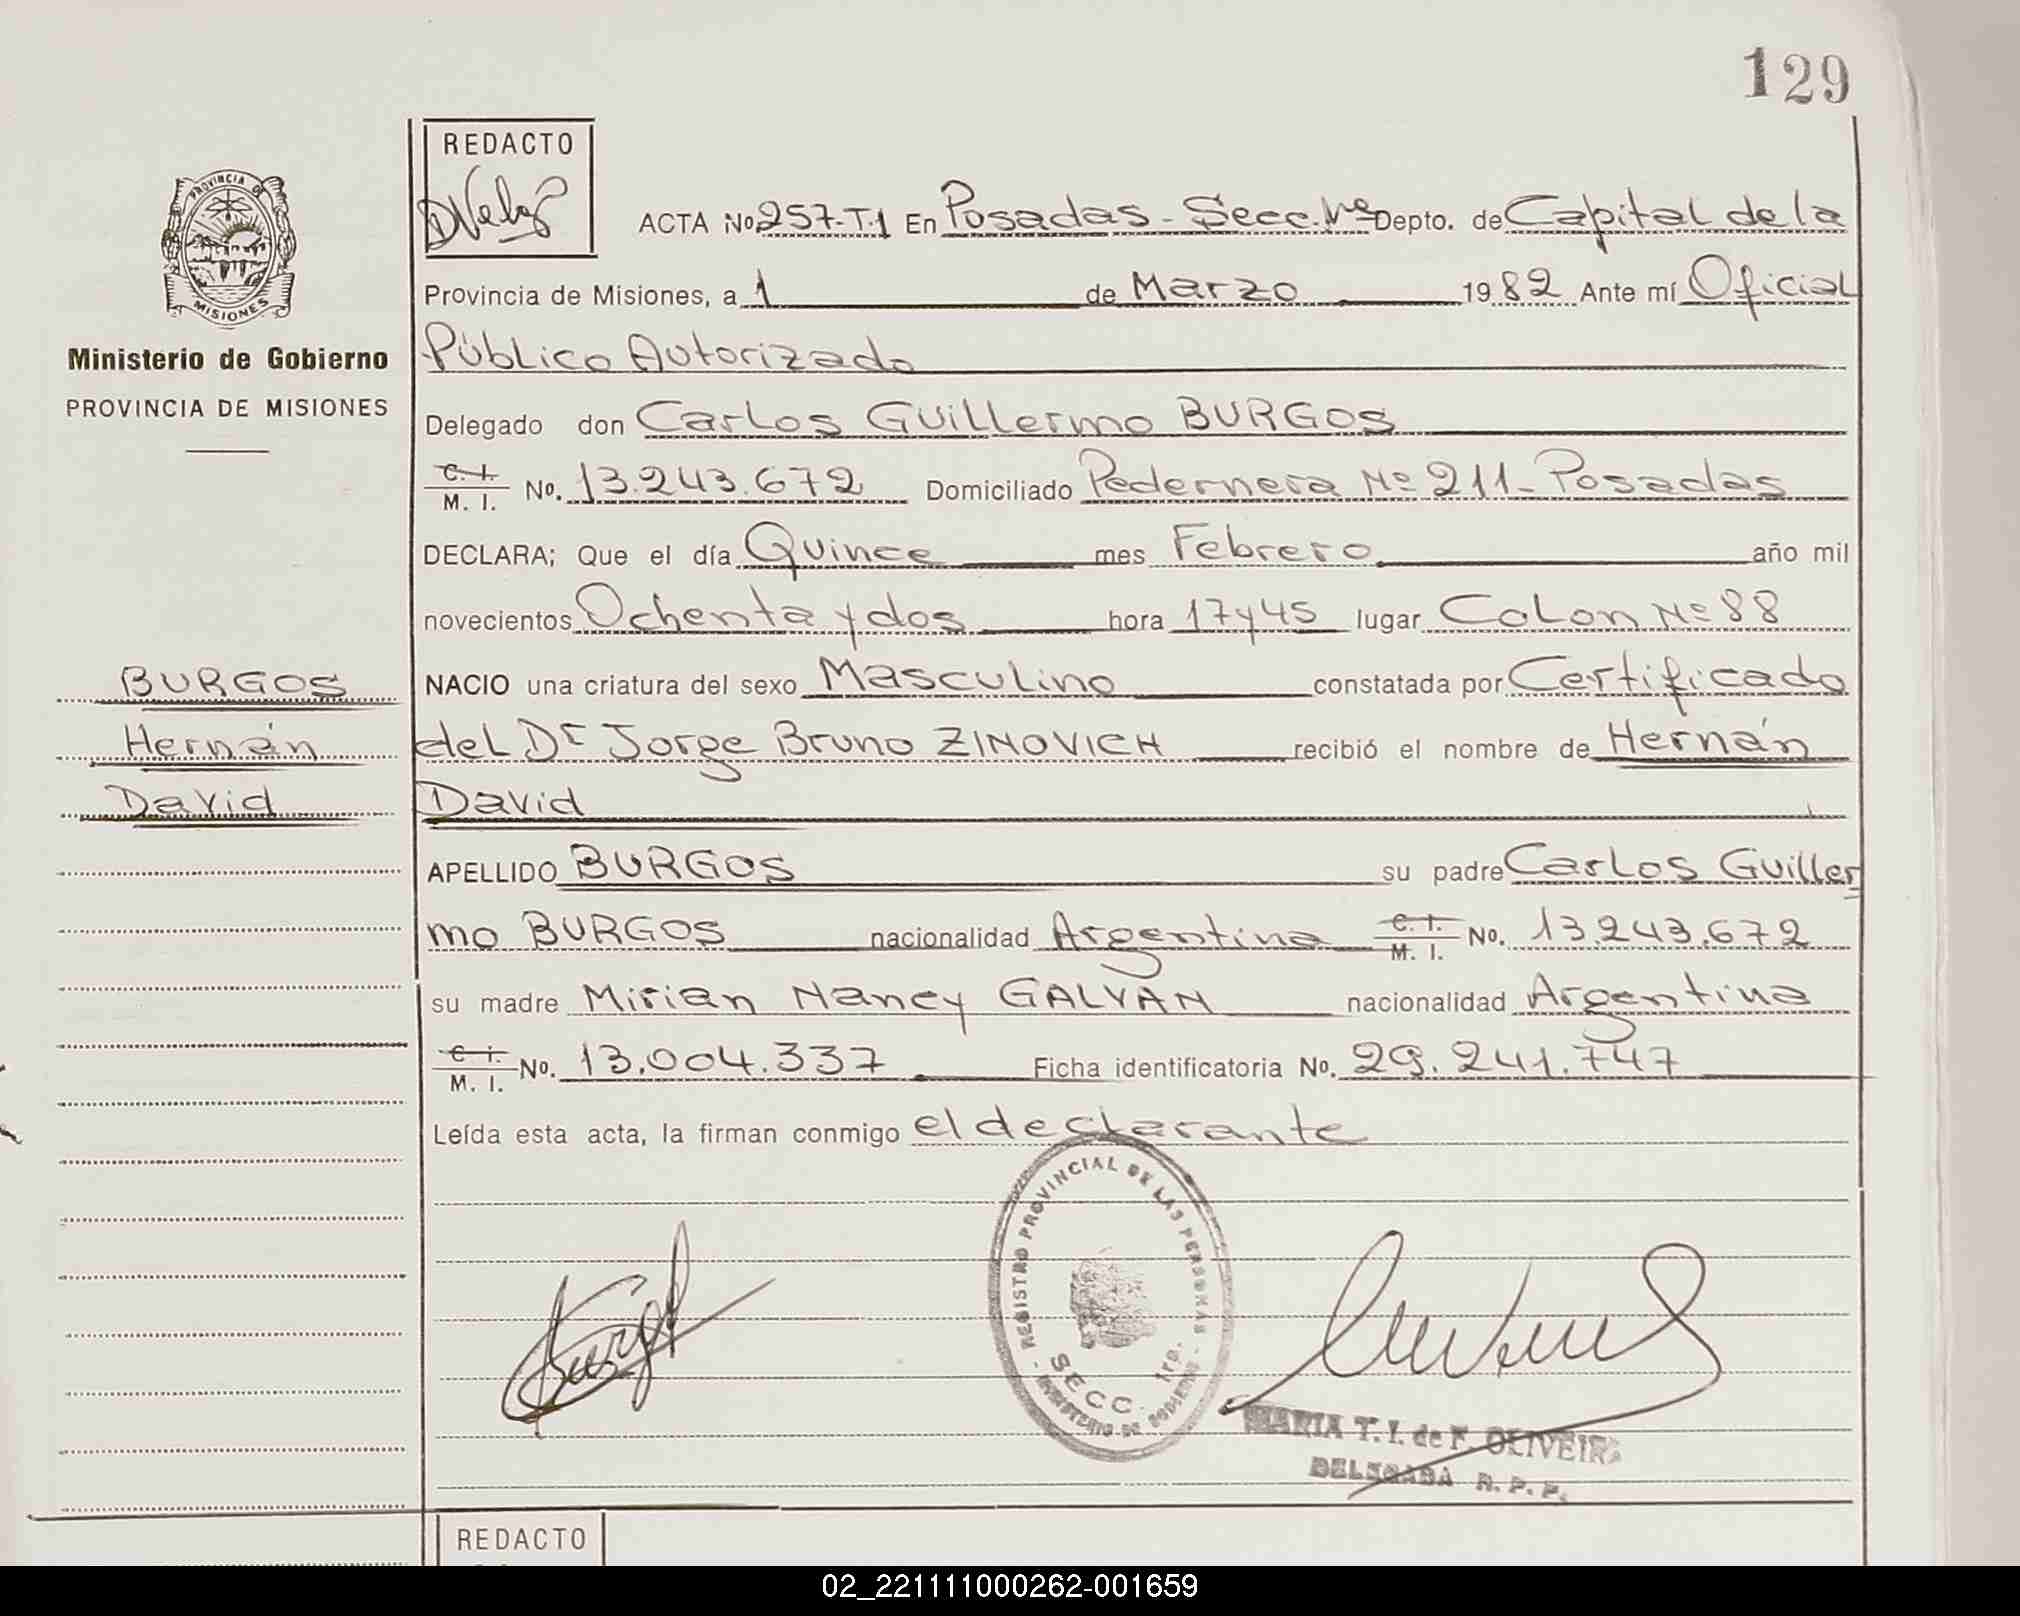 129
REDACTO
PROVINCIA DE
MISIONES
Ministerio de Gobierno
PROVINCIA DE MISIONES
BURGOS
Hernán
David
ACTA No 257-T.1 En Posadas - Secc. 1ra Depto. de Capital de la
Provincia de Misiones, a 1 de Marzo 1982 Ante mí Oficial
Público Autorizado
Delegado don Carlos Guillermo BURGOS
C. I. M. I. No. 13.243.672 Domiciliado Pedernera No 211 - Posadas
DECLARA; Que el día Quince mes Febrero año mil
novecientos Ochenta y dos hora 17 y 45 lugar Colon No 88
NACIO una criatura del sexo Masculino constatada por Certificado
del Dr Jorge Bruno ZINOVICH recibió el nombre de Hernán
David
APELLIDO BURGOS su padre Carlos Guiller
mo BURGOS nacionalidad Argentina C. I. M. I. No. 13.243.672
su madre Mirian Nancy GALVAN nacionalidad Argentina
C. I. M. I. No. 13.004.337 Ficha identificatoria No. 29.241.747
Leída esta acta, la firman conmigo el declarante
REGISTRO PROVINCIAL DE LAS PERSONAS
SECC. 1ra.
MINISTERIO DE GOBIERNO
MARIA T. I. de F. OLIVEIRA
DELEGADA R. P. P.
REDACTO
02_221111000262-001659